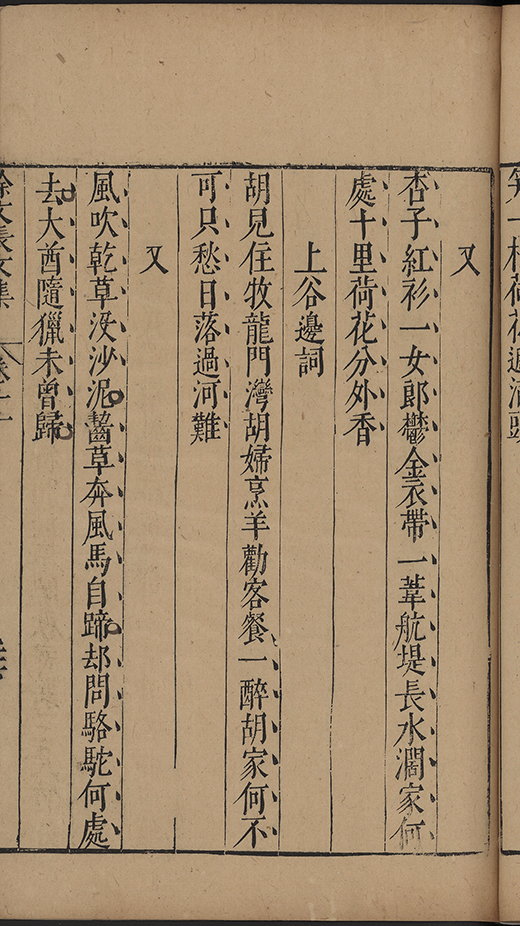 又
杏子紅衫一女郎鬱金衣帶一葦航堤長水濶家何
處十里荷花分外香
上谷邊詞
胡兒住牧龍門灣胡婦烹羊勸客餐一醉胡家何不
可只愁日落過河難
又
風吹乾草沒沙泥齧草奔風馬自蹄却問駱駝何處
去大酋隨獵未曾歸
徐文長文集 卷十二